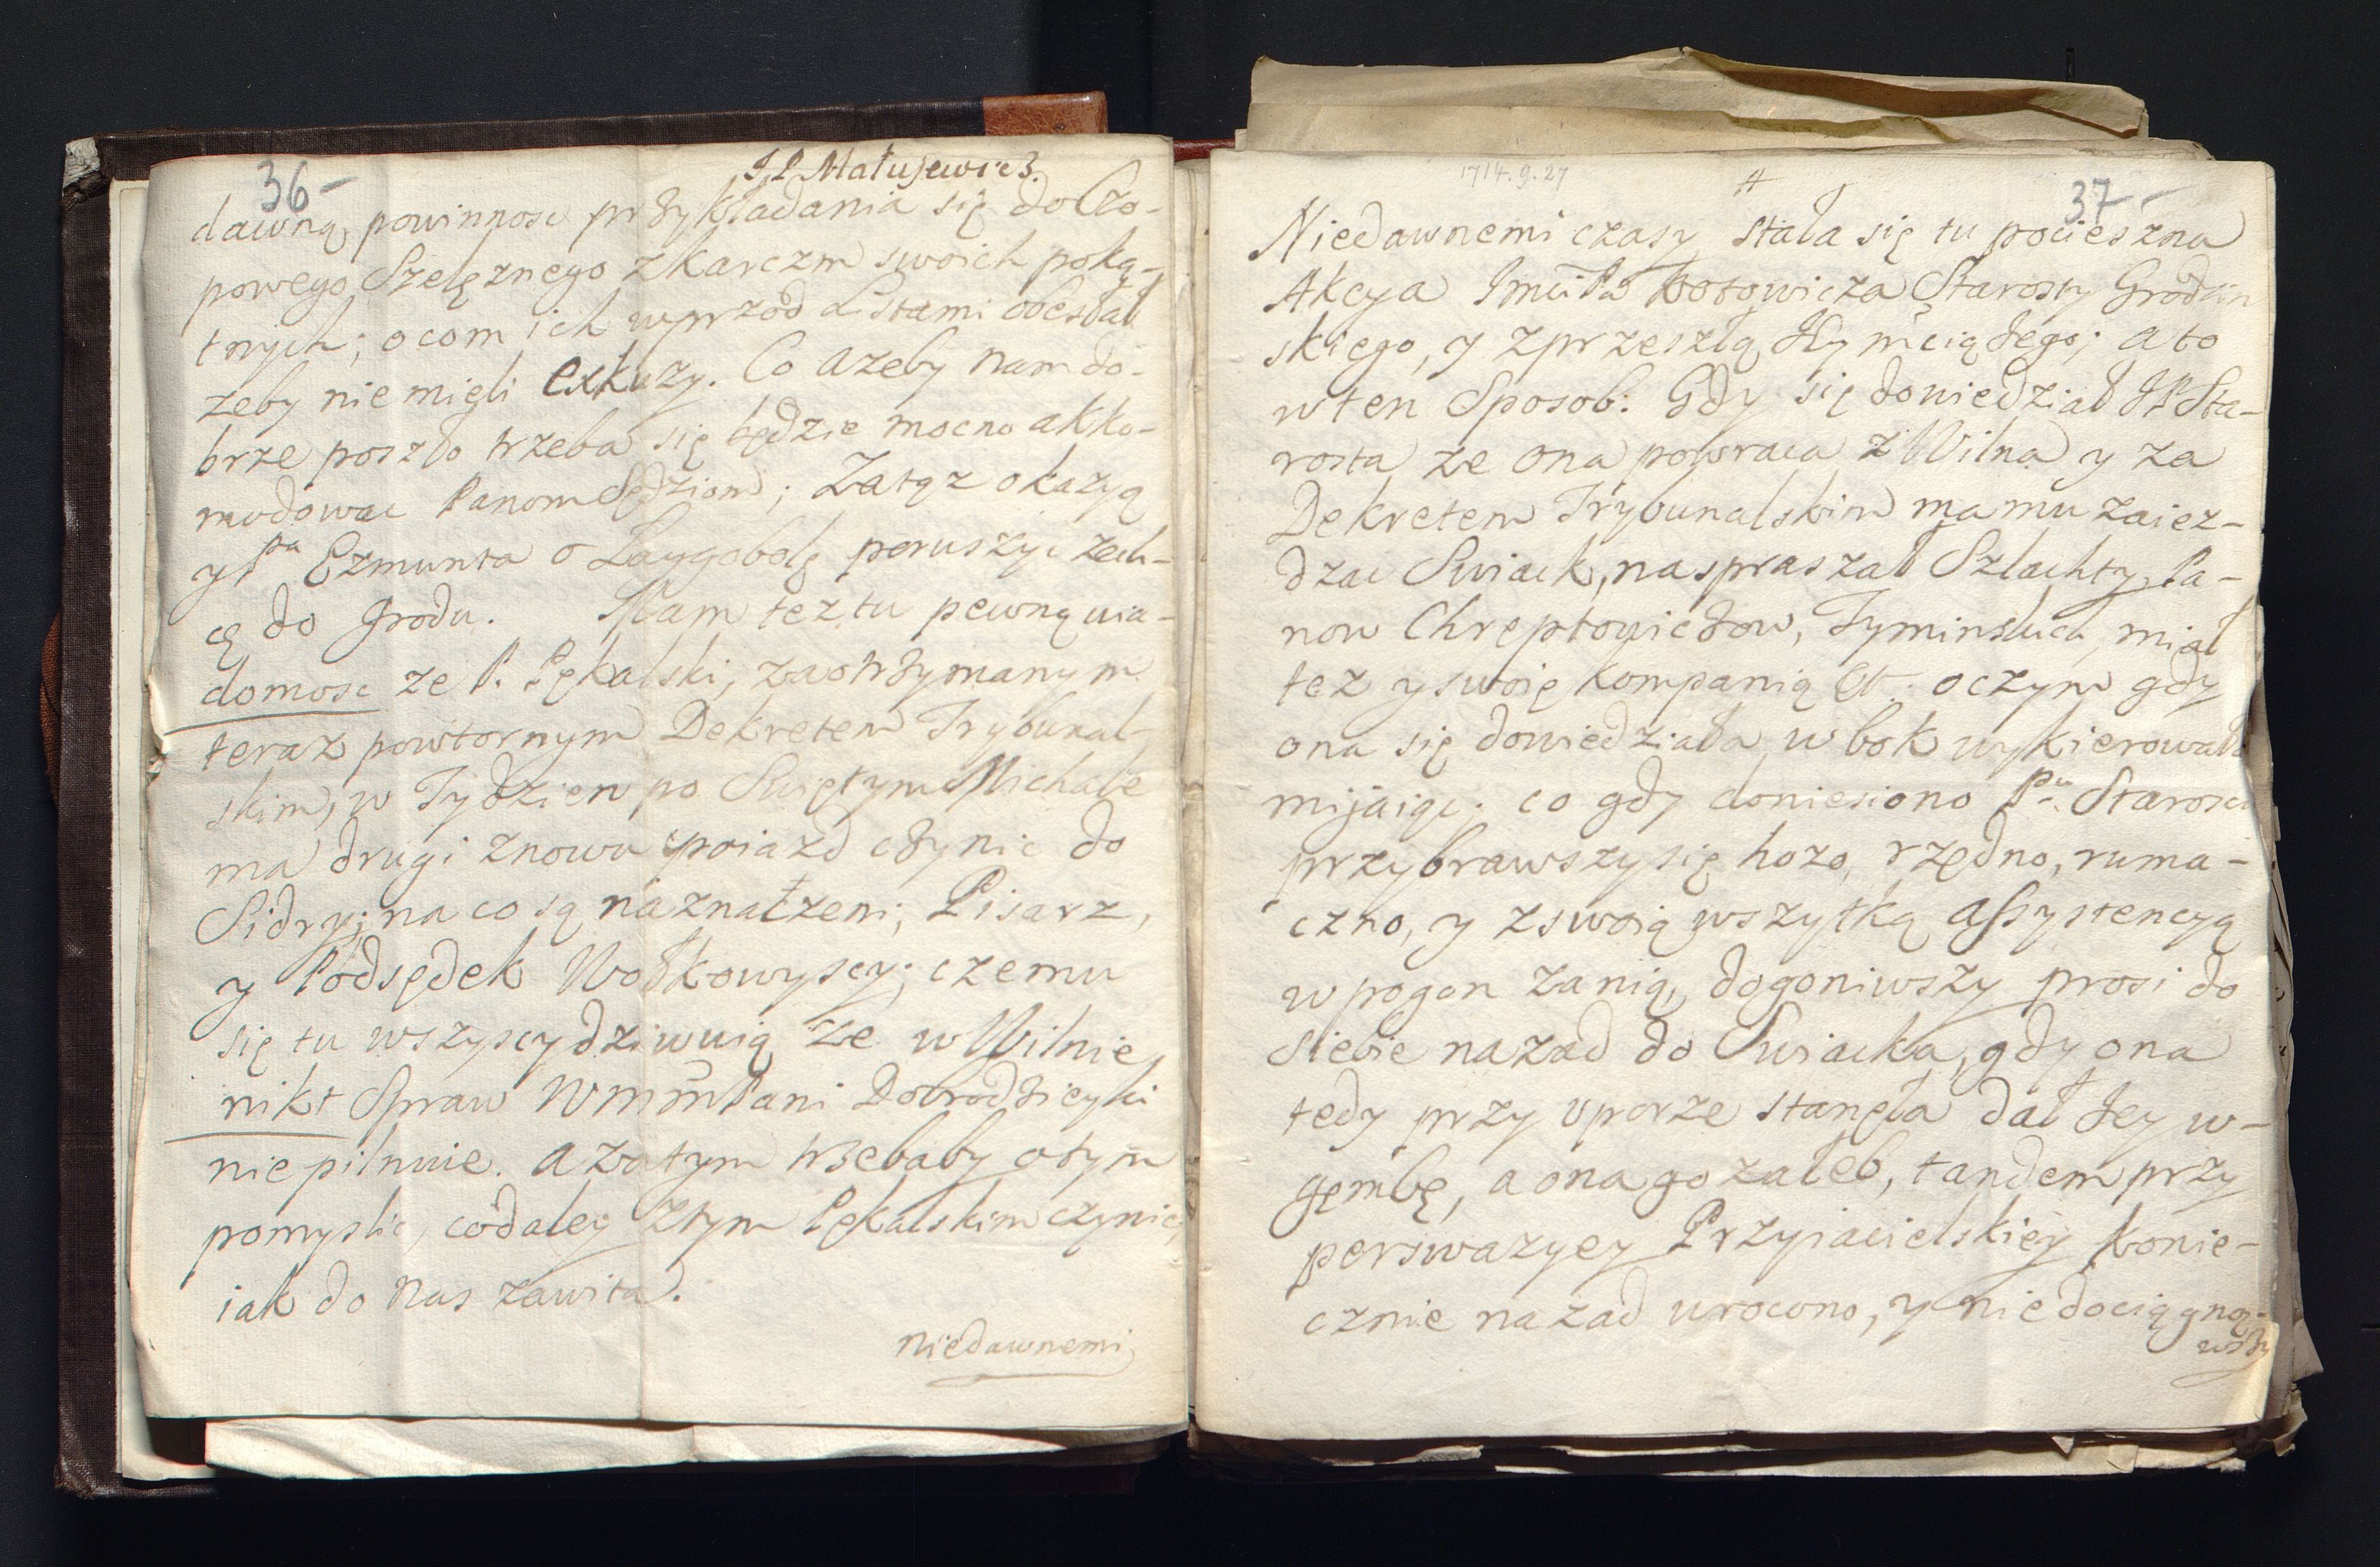 36-
J P Matujewicz.
dawną powinnosc przykładania się do Czo-
powego Szelęznego z karczm swoich poką-
tnych; o com ich wprzod Listami obesłał
zeby nie mieli exkuzy. Co azeby nam do-
brze poszło trzeba się będzie mocno akko-
modowac Panom Sędziom; Za tąz okazyą
y Pa Ezmunta o Łaygobolę poruszyc zech-
cę do Grodu. Mam tez tu pewną wia-
domosc ze P. Pękalski, za otrzymanym
teraz powtornym Dekretem Trybunal-
skim, w Tydzien po Swiętym Michale
ma drugi znowu poiazd czynic do
Sidry; na co są naznaczeni; Pisarz,
y Podsędek Wołkowyscy; czemu
się tu wszyscy dziwuią ze w Wilnie
nikt Spraw WMM Pani Dobrodzieyki
nie pilnuie. a zatym trzebaby o tym
pomyslic, co daley z tym Pękalskim czynic,
iak do nas zawita.
niedawnemi
1714.9.27
37-
Niedawnemi czasy stała się tu pocieszna
Akcya Imci Pa Kotowicza Starosty Grodzin
skiego, y z przeszłą Jey mcią Jego; a to
w ten Sposob: Gdy się dowiedział JP Sta-
rosta ze ona powraca z Wilna y za
Dekretem Trybunalskim ma mu zaiez-
dzac Swiack, naspraszał Szlachty, Pa-
now Chreptowiczow, Tyminskich, miał
tez y swoię kompanią Et. o czym gdy
ona się dowiedziała, w bok wykierowała
mijaiąc; co gdy doniesiono Pu Staroscie
przybrawszy się hozo, rzędno, ruma-
czno, y z swoią wszytką assystencyą
w pogon za nią, dogoniwszy prosi do
siebie nazad do Swiacka, gdy ona
tedy przy uporze stanęła dał Jey w-
gembę, a ona go za łeb, tandem przy
perswazyey Przyiacielskiey konie-
cznie nazad wrocono, y nie dociągną-
wszy